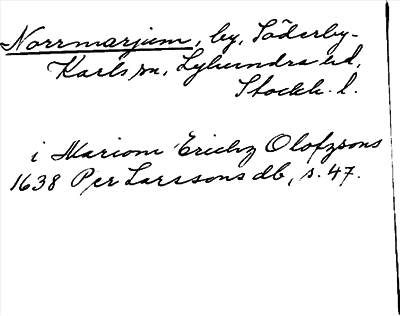 Norrmarjum, by, Söderby-
Karls sn, Lyhundra hd,
Stockh. l.
i Mariom Erichz Olofzsons
1638 Per Larssons db, s. 47.